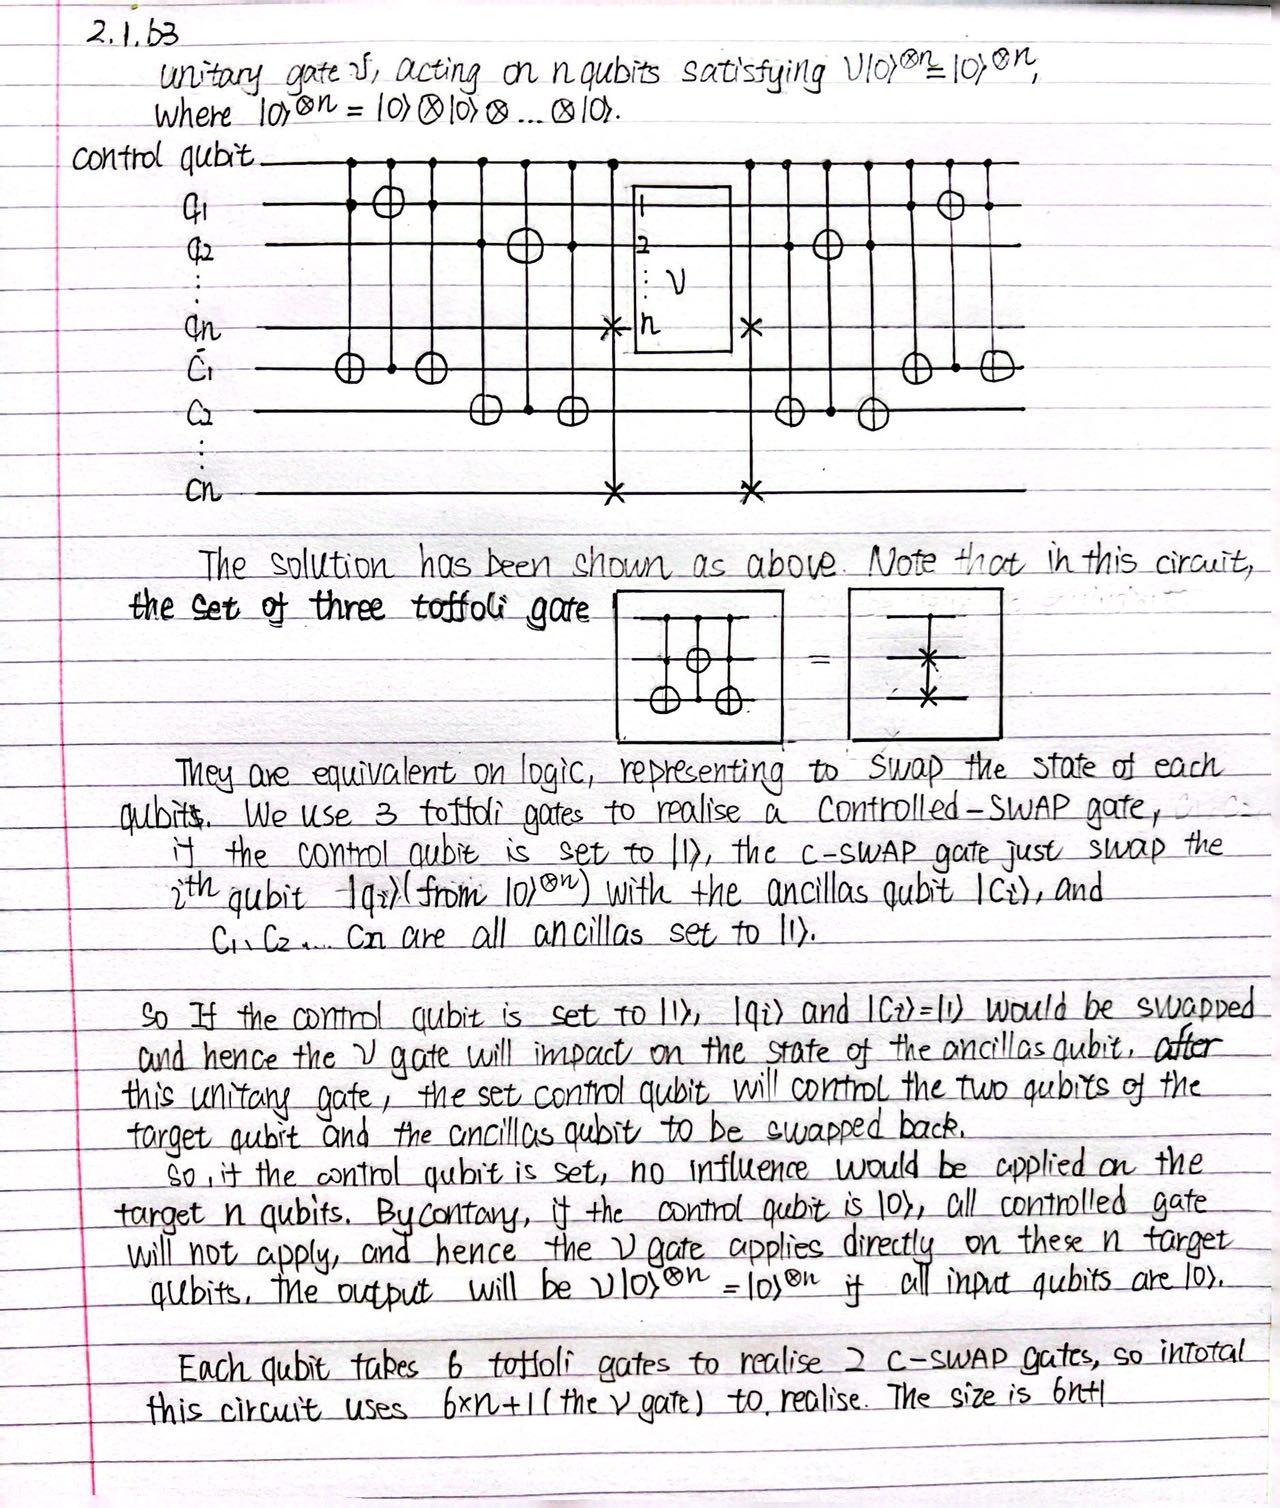 2.1.b3
unitary gate V, acting on n qubits satisfying V|0⟩⊗n=|0⟩⊗n,
where |0⟩⊗n = |0⟩⊗|0⟩⊗...⊗|0⟩.
control qubit
q1
1
q2
2
⋮
⋮
V
qn
n
C1
C2
⋮
Cn
The solution has been shown as above. Note that in this circuit,
the set of three toffoli gate
=
They are equivalent on logic, representing to swap the state of each
qubits. We use 3 toffoli gates to realise a controlled-SWAP gate,
if the control qubit is set to |1⟩, the C-SWAP gate just swap the
ith qubit |qi⟩(from |0⟩⊗n) with the ancillas qubit |Ci⟩, and
C1、C2 .... Cn are all ancillas set to |1⟩.
So If the control qubit is set to |1⟩, |qi⟩ and |Ci⟩=|1⟩ would be swapped
and hence the V gate will impact on the state of the ancillas qubit. after
this unitary gate, the set control qubit will control the two qubits of the
target qubit and the ancillas qubit to be swapped back.
So, if the control qubit is set, no influence would be applied on the
target n qubits. By contary, if the control qubit is |0⟩, all controlled gate
will not apply, and hence the V gate applies directly on these n target
qubits. The output will be V|0⟩⊗n = |0⟩⊗n if all input qubits are |0⟩.
Each qubit takes 6 toffoli gates to realise 2 C-SWAP gates, so intotal
this circuit uses 6×n+1 (the V gate) to realise. The size is 6n+1